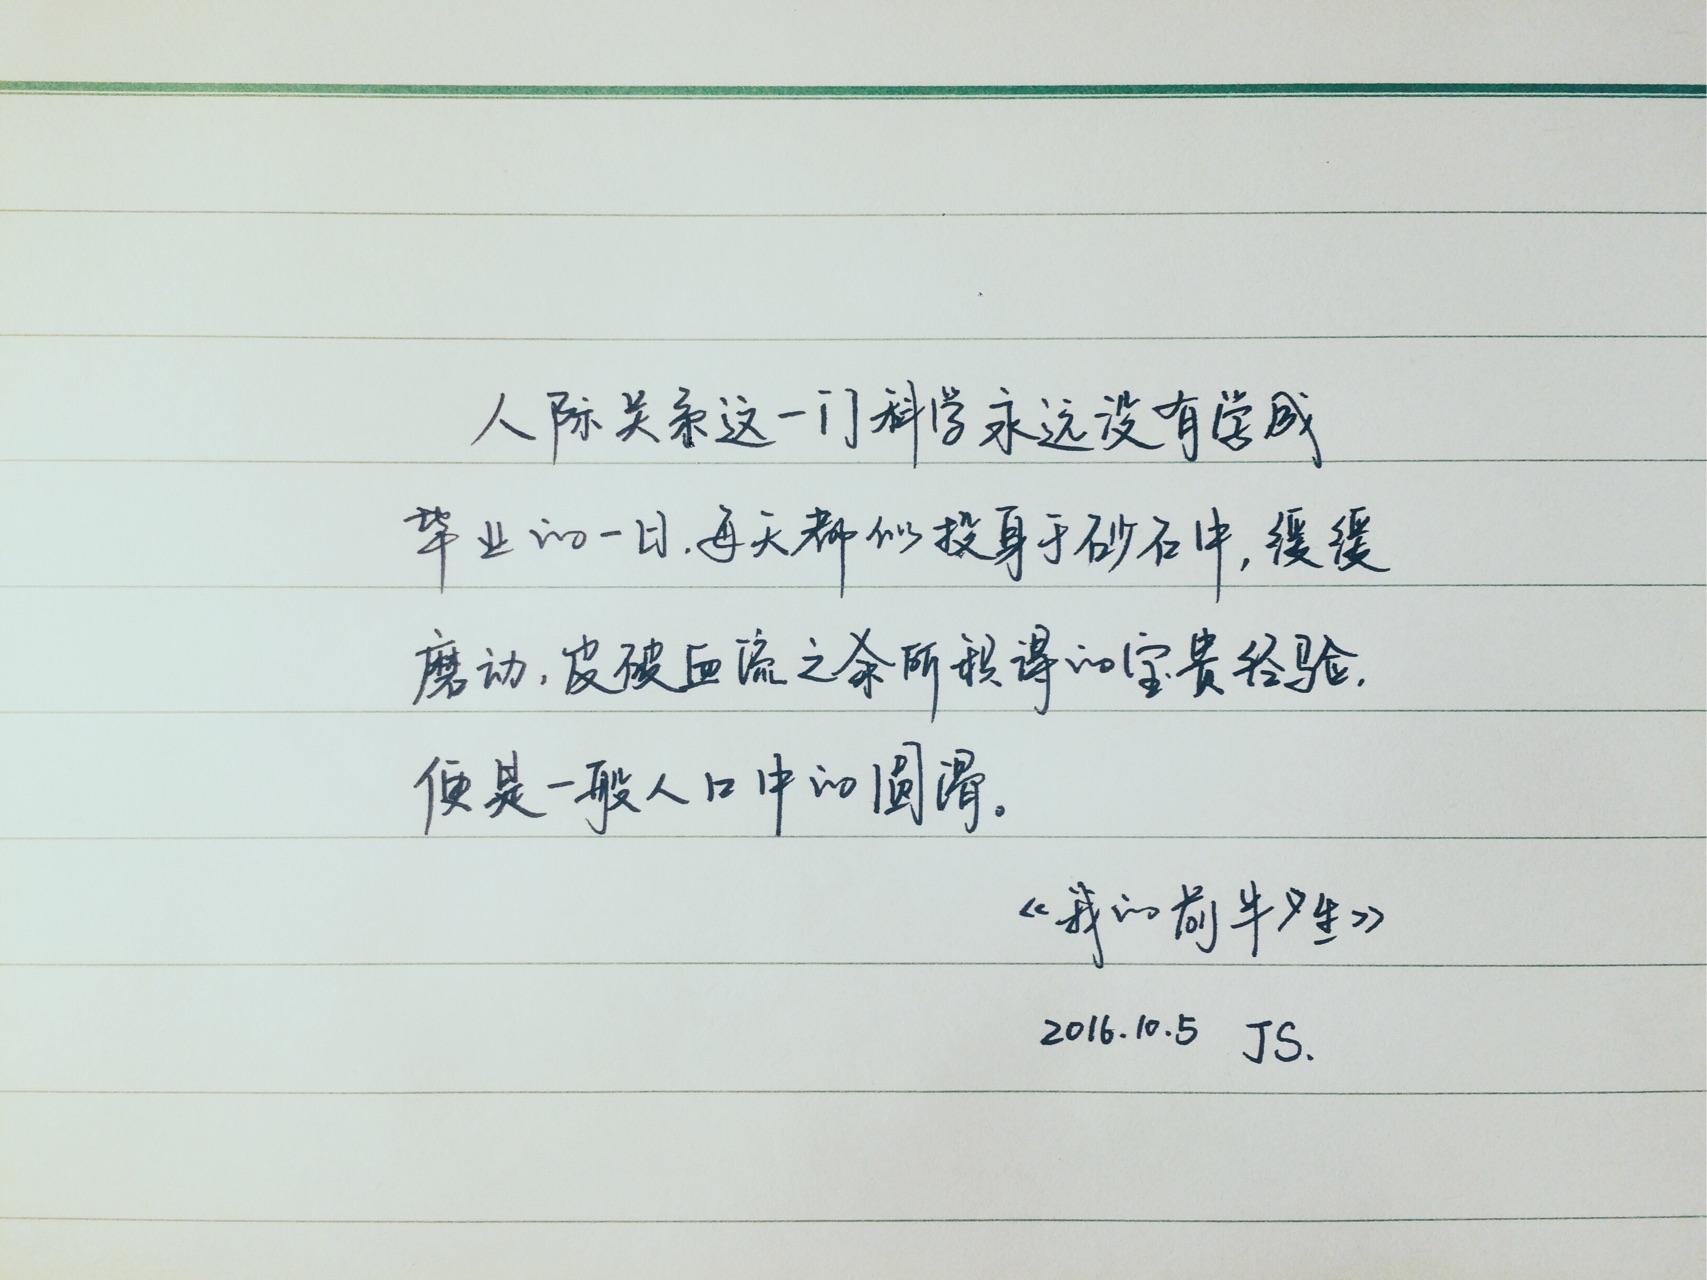 人际关系这一门科学永远没有学成
毕业的一日,每天都似投身于砂石中,缓缓
磨动,皮破血流之余所积得的宝贵经验,
便是一般人口中的圆滑。
《我的前半生》
2016.10.5 JS.